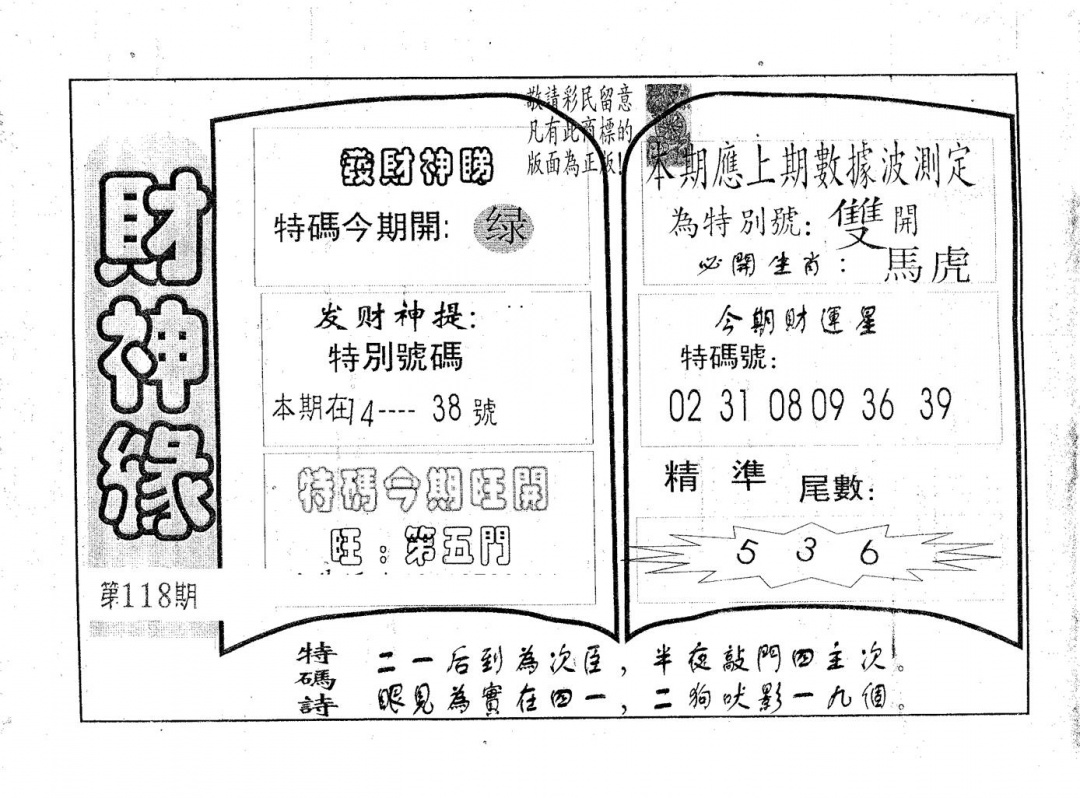 財神緣
第118期
敬請彩民留意
凡有此商標的
版面為正版!
發財神睇
特碼今期開: 绿
发财神提:
特別號碼
本期在14---- 38 號
特碼今期旺開
旺:第五門
本期應上期數據波測定
為特別號: 雙 開
必開生肖: 馬虎
今期財運星
特碼號:
02 31 08 09 36 39
精 準 尾數:
5 3 6
特碼詩
二一后到為次臣,半夜敲門四主次。
眼見為實在四一,二狗吠影一九個。